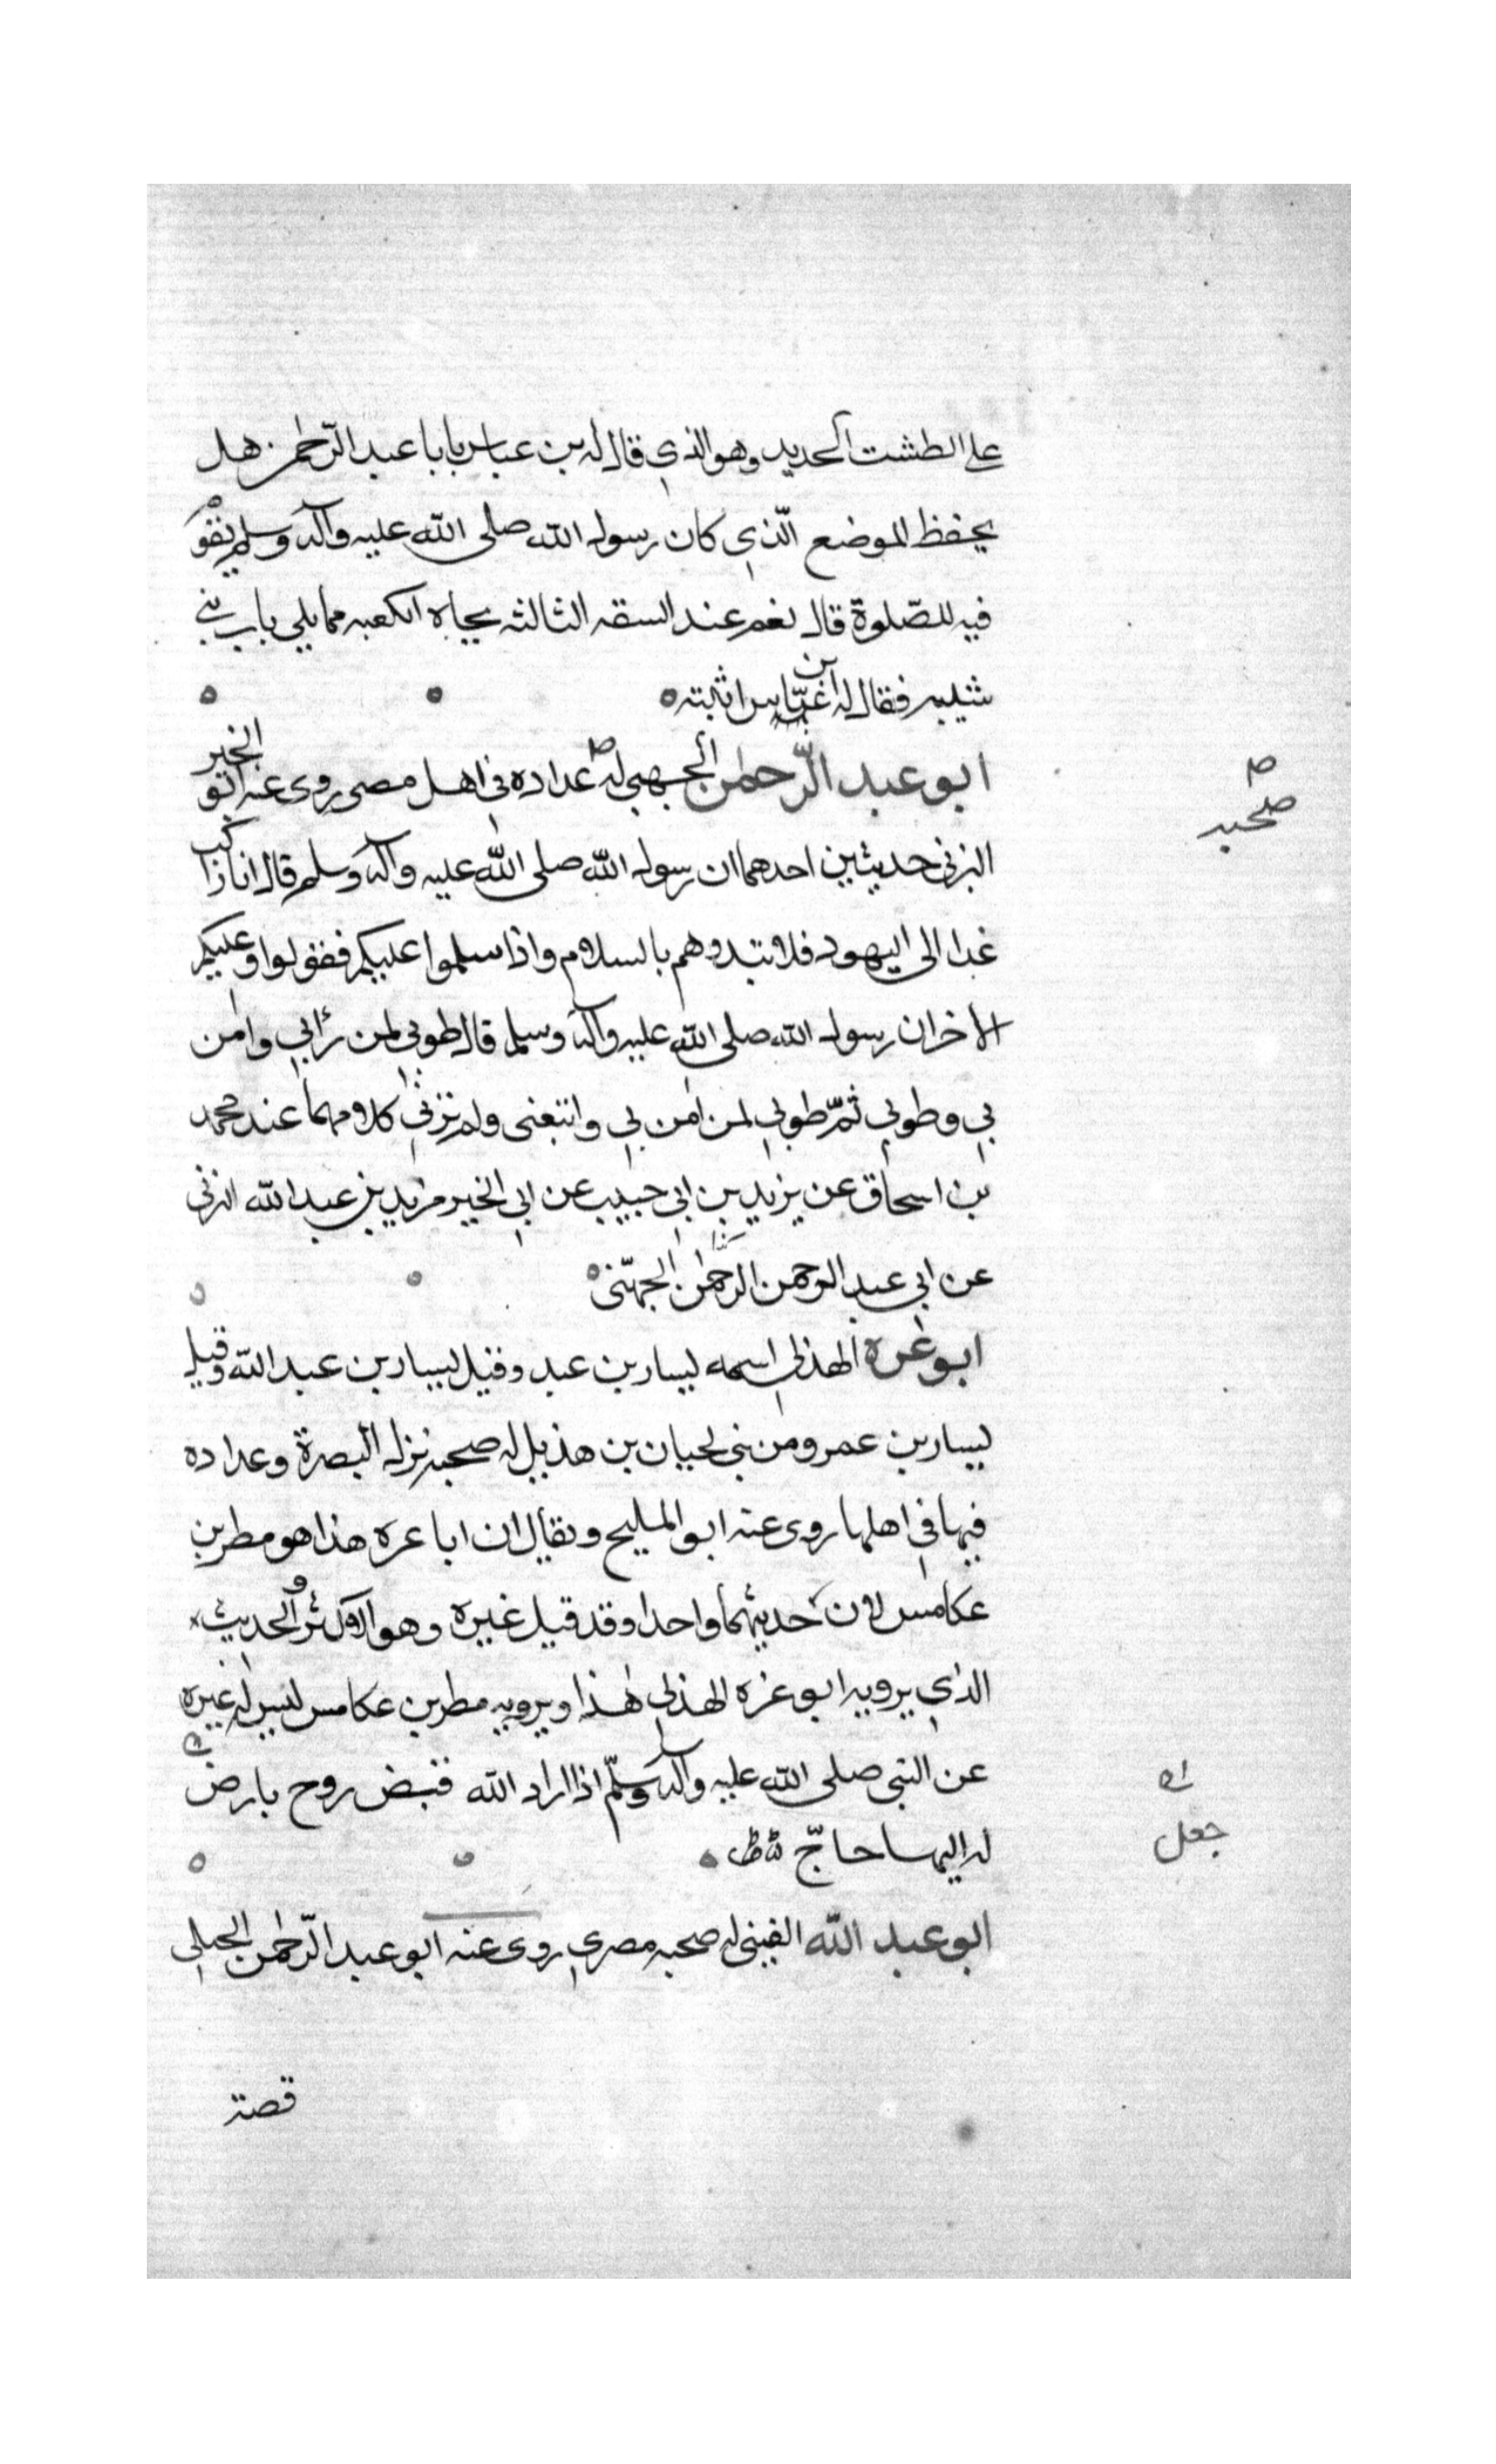 على الطشت الحديد وهو الذي قال له بن عباس يا با عبد الرّحمن هل
يحفظ الموضع الّذي كان رسول الله صلى الله عليه وآله وسلم يقوم
فيه للصّلوة قال نعم عند السقه الثالثه تجاه الكعبه مما يلي باب بني
شيبه فقال له ابن عبّاس اثبته
ابو عبد الرّحمن الجهني له عداده في اهل مصر روى عنه ابو الخير
صحبه
اليزني حديثين احدهما ان رسول الله صلى الله عليه وآله وسلم قال انا راكب
غدا الى اليهود فلا تبدوهم بالسلام واذا سلموا عليكم فقولوا وعليكم
الاخر ان رسول الله صلى الله عليه وآله وسلم قال طوبي لمن رأني وامن
بي وطوبي ثمّ طوبي لمن امن بي واتبعني ولم يرني كلاهما عند محمد
بن اسحاق عن يزيد بن ابي حبيب عن ابي الخير مزيد بن عبد الله اليزني
عن ابي عبد الرحمن الرحمن الجهني
ابو عزه الهذلي اسمه يسار بن عبد وقيل يسار بن عبد الله وقيل
يسار بن عمرو من بني لحيان بن هذيل له صحبه نزل البصرة وعداده
فيها في اهلها روى عنه ابو المليح ويقال ان ابا عزه هذا هو مطر بن
عكامس لان حديثهما واحد وقد قيل غيره وهو الاكثر والحديث
الذي يرويه ابو عزه الهذلي هذا ويرويه مطر بن عكامس ليس له غيره
عن النبي صلى الله عليه وآله وسلّم اذا اراد الله قبض روح بارض
جعل
له اليها حاجّ
ابو عبد الله القيني له صحبه مصري روى عنه ابو عبد الرّحمن الحبلي
قصة